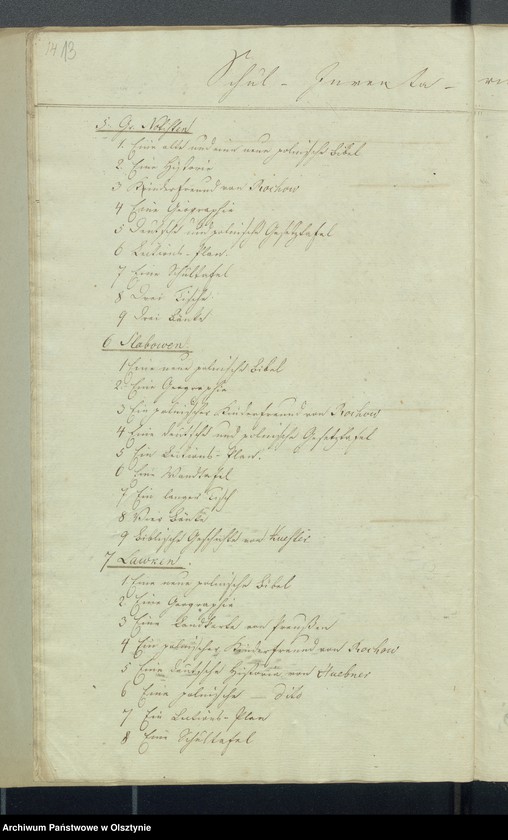 14 13
Schul - Inventa- ri
5. Gr. Notisten
1 Eine alte und eine neue polnische Bibel
2 Eine Historie
3 Kinderfreund von Rochow
4 Eine Geographie
5 Deutsche und polnische Gesetztafel
6 Lections-Plan
7 Eine Schultafel
8 Drei Tische
9 Drei Bänke
6 Slabowen
1 Eine neue polnische Bibel
2 Eine Geographie
3 Ein polnischer Kinderfreund von Rochow
4 Eine deutsche und polnische Gesetztafel
5 Ein Lections-Plan.
6 Eine Wandtafel
7 Ein langer Tisch
8 Vier Bänke
9 Biblische Geschichte von
7 Lawken.
1 Eine neue polnische Bibel
2 Eine Geographie
3 Eine Landkarte von Preußen
4 Ein polnischer Kinderfreund von Rochow
5 Eine deutsche Historie von Huebner
6 Eine polnische — dito
7 Ein Lections-Plan
8 Eine Schultafel
Archiwum Państwowe w Olsztynie